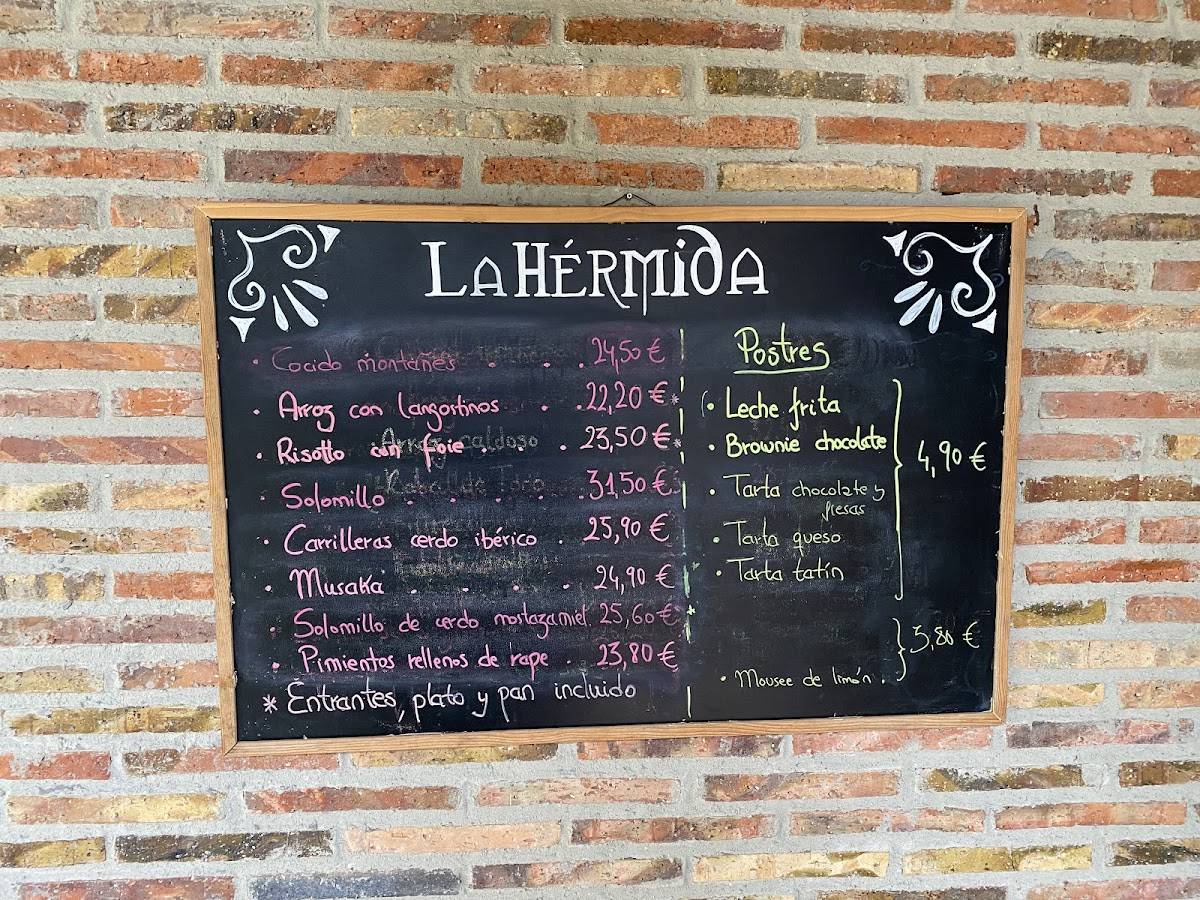 LA HÉRMIDA
· Cocido montañes . . . 24,50 €
· Arroz con langostinos . . 22,20 € *
· Risotto con foie . . . 23,50 € *
· Solomillo . . . . . 31,50 €
· Carrilleras cerdo ibérico . 25,90 €
· Musaka . . . . . 24,90 €
· Solomillo de cerdo mostazamiel. 25,60 €
· Pimientos rellenos de rape . 23,80 €
* Entrantes, plato y pan incluido
Postres
· Leche frita
· Brownie chocolate
4,90 €
· Tarta chocolate y
fresas
· Tarta queso
· Tarta tatín
3,80 €
· Mousee de limón .